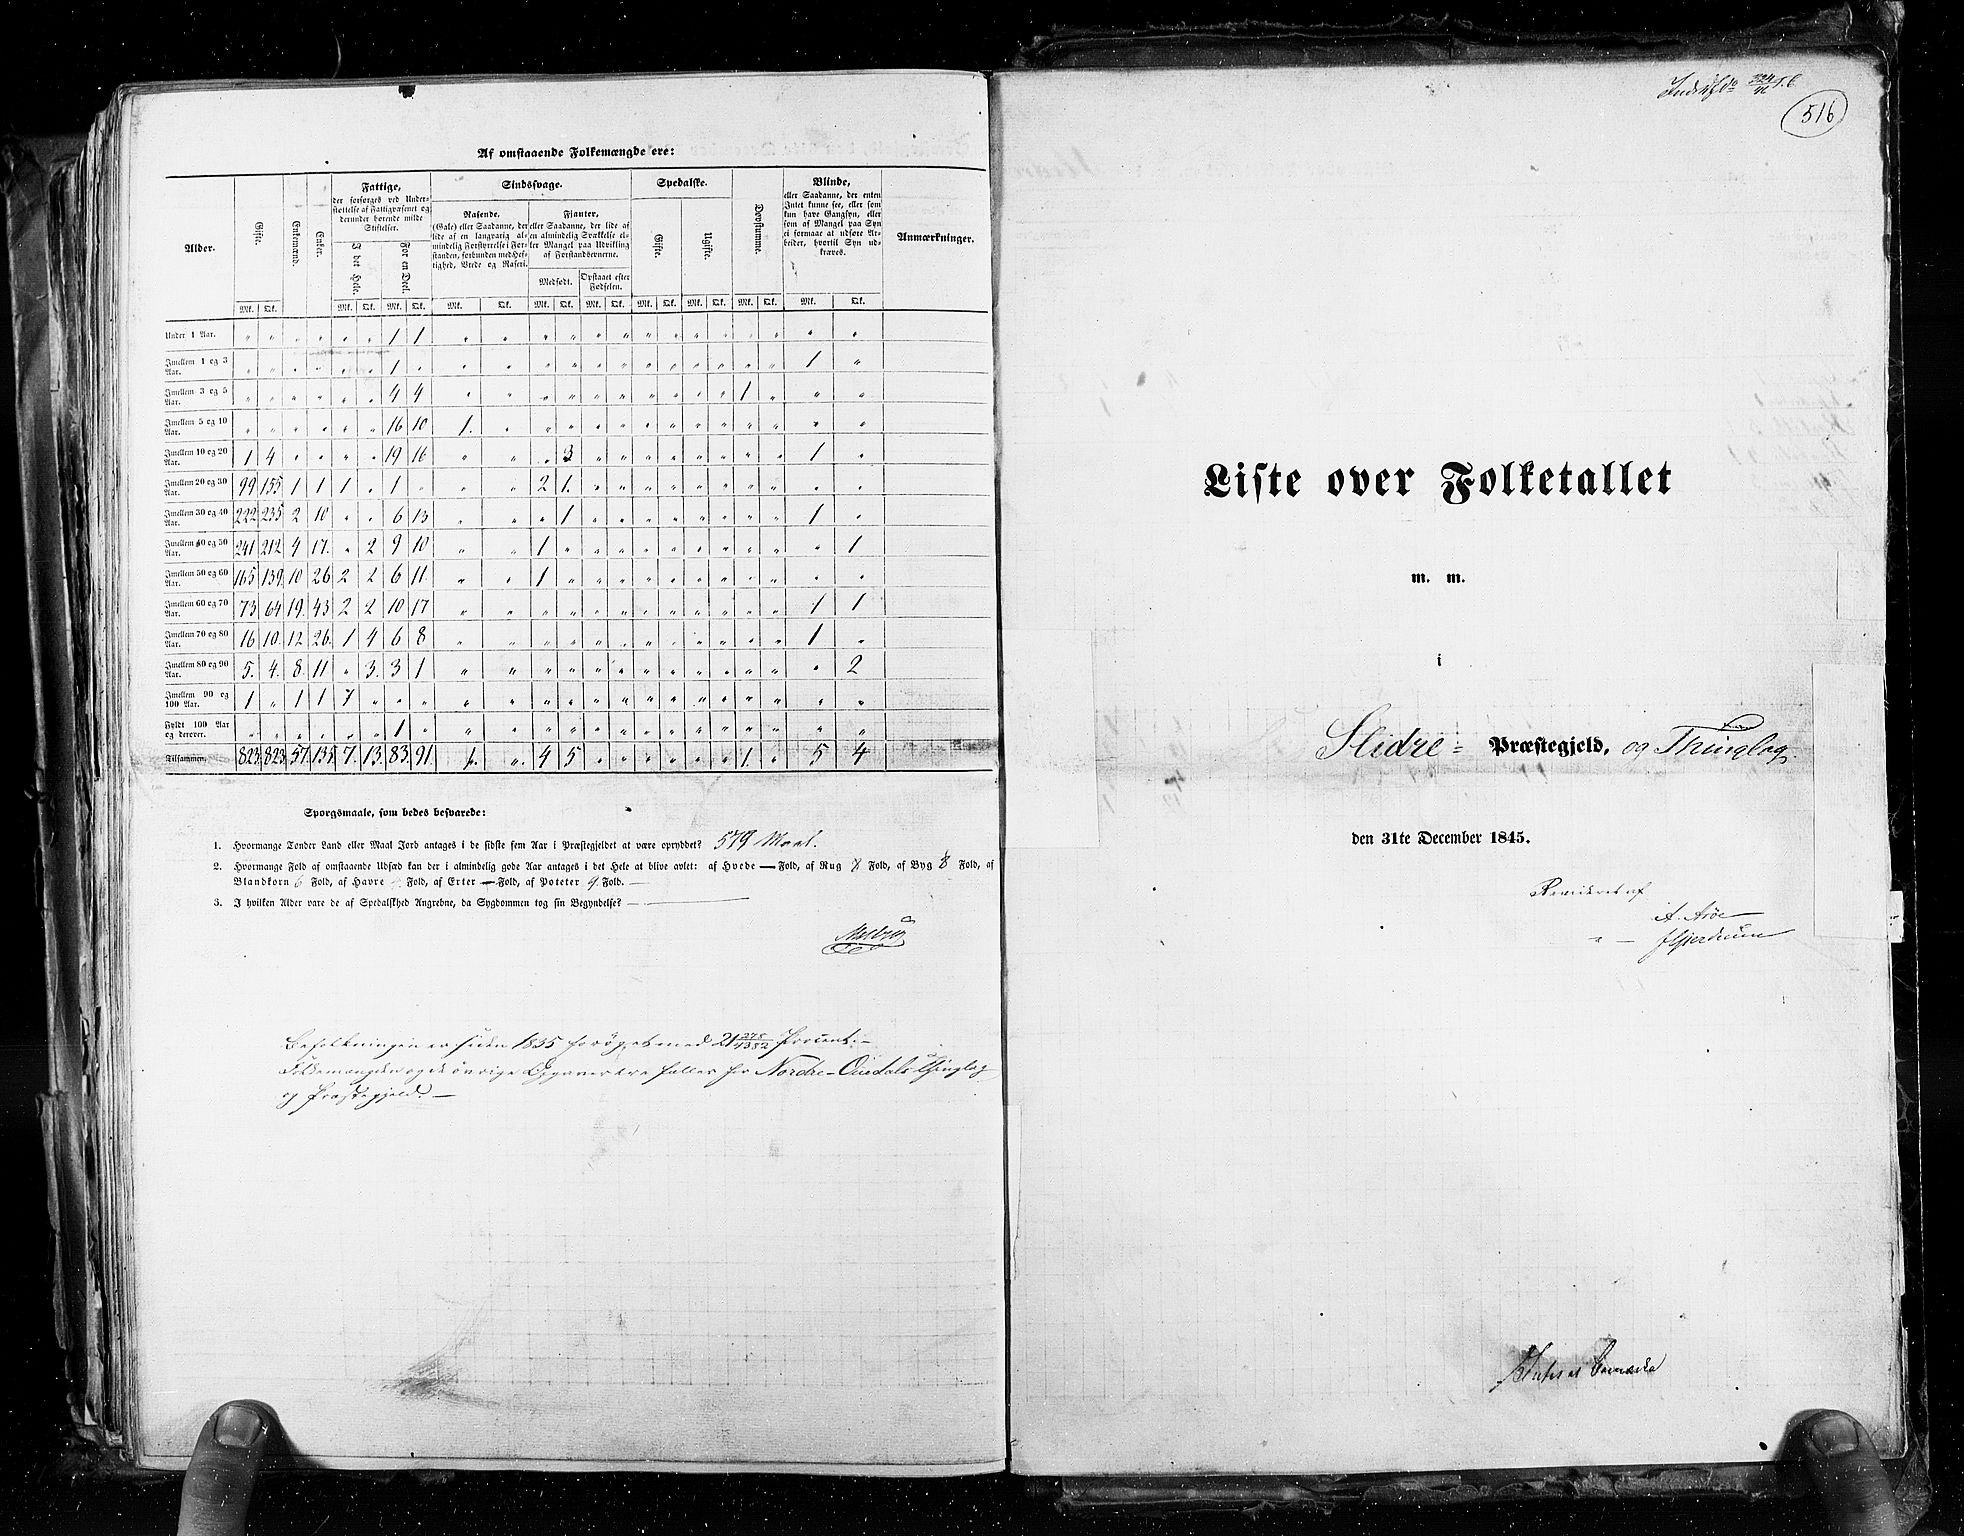 Af omstaaende Folkemængde ere:
Alder.
Gifte.
Enkemænd.
Enker.
Fattige,
der forsørges ved Under-
støttelse af Fattigvæsenet og
derunder hørende milde
Stiftelser.
I det Hele.
For en Deel.
Sindssvage.
Rasende.
(Gale) eller Saadanne, der
lide af en langvarig al-
mindelig Forstyrrelse i For-
standen, forbunden med Hef-
tighed, Vrede og Raseri.
Fjanter,
eller Saadanne, der lide af
en almindelig Svækkelse el-
ler Mangel paa Udvikling
af Forstandsevnerne.
Medfødt.
Opstaaet efter
Fødselen.
Spedalske.
Gifte.
Ugifte.
Døvstumme.
Blinde,
eller Saadanne, der enten
Intet kunne see, eller som
kun have Gangsyn, eller
som af Mangel paa Syn
ei formaae at udføre Ar-
beider, hvortil Syn ud-
kræves.
Anmærkninger.
Mk. Qk. Mk. Qk. Mk. Qk. Mk. Qk. Mk. Qk. Mk. Qk. Mk. Qk. Mk. Qk. Mk. Qk. Mk. Qk.
Under 1 Aar. " " " " " " 1 1 " " " " " " " " " " " " " "
Imellem 1 og 3 Aar. " " " " " " 1 " " " " " " " " " " " " " 1 "
Imellem 3 og 5 Aar. " " " " " " 4 4 " " " " " " " " " " 1 " " "
Imellem 5 og 10 Aar. " " " " " " 16 10 1. " " " " " " " " " " " " "
Imellem 10 og 20 Aar. 1 4 " " " " 19 16 " " " 3 " " " " " " " " 1 "
Imellem 20 og 30 Aar. 99 155 1 1 1 " 1 " " " 2 1. " " " " " " " " " "
Imellem 30 og 40 Aar. 222 235 2 10 " " 6 13 " " " 1 " " " " " " " " 1 "
Imellem 40 og 50 Aar. 241 212 4 17. " 2 9 10 " " 1 " " " " " " " " " " 1
Imellem 50 og 60 Aar. 165 139 10 26 2 2 6 11. " " 1 " " " " " " " " " " "
Imellem 60 og 70 Aar. 73 64 19. 43 2 2 10 17 " " " " " " " " " " " " 1 1
Imellem 70 og 80 Aar. 16 10. 12 26. 1 4 6 8 " " " " " " " " " " " " 1 "
Imellem 80 og 90 Aar. 5. 4. 8. 11 " 3. 3 1 " " " " " " " " " " " " " 2
Imellem 90 og 100 Aar. 1 " 1 1 1 " " " " " " " " " " " " " " " " "
Fyldt 100 Aar og derover. " " " " " " 1 " " " " " " " " " " " " " " "
Tilsammen. 823 823 57. 135 7. 13. 83. 91. 1. " 4 5 " " " " " " 1. " 5 4
Spørgsmaale, som bedes besvarede:
1. Hvormange Tønder Land eller Maal Jord antages i de sidste fem Aar i Præstegjeldet at være opryddet? 579 Maal.
2. Hvormange Fold af omstaaende Udsæd kan der i almindelig gode Aar antages i det Hele at blive avlet: af Hvede — Fold, af Rug 8 Fold, af Byg 8 Fold, af
Blandkorn 6 Fold, af Havre Fold, af Erter — Fold, af Poteter 9 Fold. —
3. I hvilken Alder vare de af Spedalskhed Angrebne, da Sygdommen tog sin Begyndelse? —
Befolkningen er siden 1835 forøget med 21 278/4382 Procent. —
Folkemængden og de øvrige Opgaver der falder for Nordre-Ourdals Thinglag
og Præstegjeld. —
516
Liste over Folketallet
m. m.
i
Slidre = Præstegjeld, og Thinglag.
den 31te December 1845.
Revideret af
A. Arøe
" — Gjerdrum